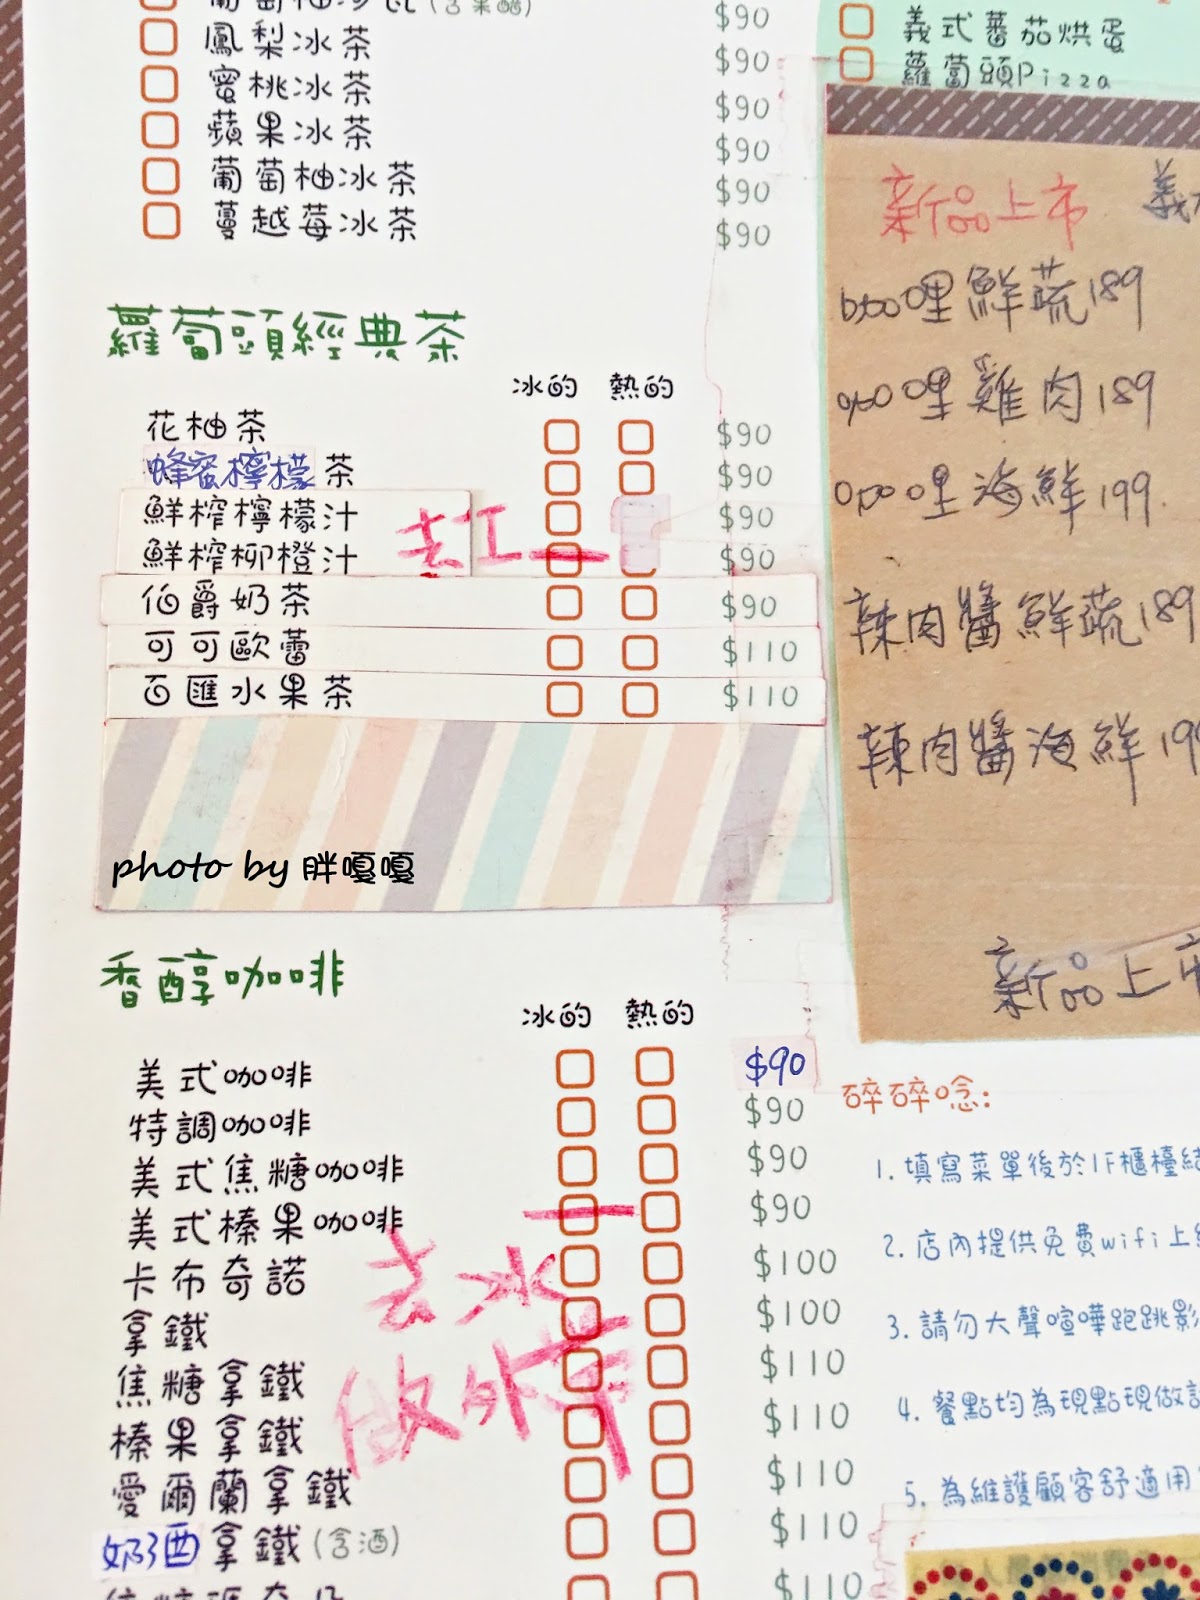 (含果醋) $90
鳳梨冰茶 $90
蜜桃冰茶 $90
蘋果冰茶 $90
葡萄柚冰茶 $90
蔓越莓冰茶 $90
蘿蔔頭經典茶
冰的 熱的
花柚茶 $90
蜂蜜檸檬茶 $90
鮮榨檸檬汁 $90
鮮榨柳橙汁 $90
伯爵奶茶 $90
可可歐蕾 $110
百匯水果茶 $110
photo by 胖嘎嘎
香醇咖啡
冰的 熱的
美式咖啡 $90
特調咖啡 $90
美式焦糖咖啡 $90
美式榛果咖啡 $90
卡布奇諾 $100
拿鐵 $100
焦糖拿鐵 $110
榛果拿鐵 $110
愛爾蘭拿鐵 $110
奶酒拿鐵(含酒) $110
$110
去冰
義式蕃茄烘蛋
蘿蔔頭Pizza
新品上市
哩鮮蔬189
哩雞肉189
哩海鮮199
辣肉醬鮮蔬189
辣肉醬海鮮199
新品上市
碎碎唸:
1.填寫菜單後於1F櫃檯結
2.店內提供免費wifi上
3.請勿大聲喧嘩跑跳影
4.餐點均為現點現做
5.為維護顧客舒適用